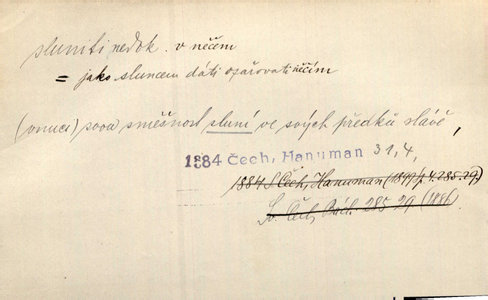 sluniti nedok. v něčem
= jako sluncem dáti ozařovati něčím
(vnuci) svou směšnost sluní ve svých předků slávě,
1884 Čech, Hanuman 31,4,
1884 S. Čech, Hanuman (1894) 4. 285. 29)
Sv. Čech, 285 29 (1886)